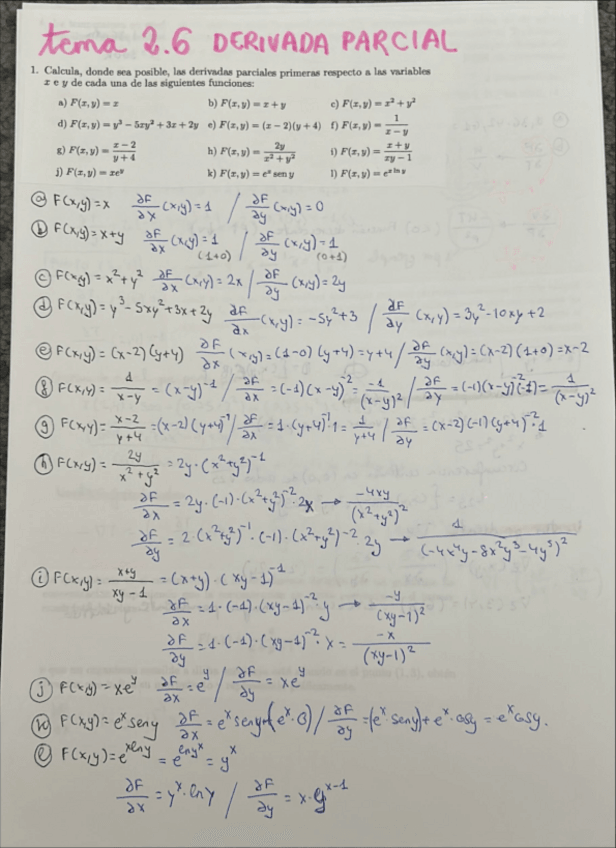 tema 2.6 DERIVADA PARCIAL
1. Calcula, donde sea posible, las derivadas parciales primeras respecto a las variables
x e y de cada una de las siguientes funciones:
a) F(x, y) = x b) F(x, y) = x + y c) F(x, y) = x² + y²
d) F(x, y) = y³ − 5xy² + 3x + 2y e) F(x, y) = (x − 2)(y + 4) f) F(x, y) = 1/(x − y)
g) F(x, y) = (x − 2)/(y + 4) h) F(x, y) = 2y/(x² + y²) i) F(x, y) = (x + y)/(xy − 1)
j) F(x, y) = xeʸ k) F(x, y) = eˣ sen y l) F(x, y) = e^(x ln y)
a) F(x,y) = x ∂F/∂x (x,y) = 1 / ∂F/∂y (x,y) = 0
b) F(x,y) = x+y ∂F/∂x (x,y) = 1 (1+0) / ∂F/∂y (x,y) = 1 (0+1)
c) F(x,y) = x²+y² ∂F/∂x (x,y) = 2x / ∂F/∂y (x,y) = 2y
d) F(x,y) = y³ - 5xy² + 3x + 2y ∂F/∂x (x,y) = -5y² + 3 / ∂F/∂y (x,y) = 3y² - 10xy + 2
e) F(x,y) = (x-2)(y+4) ∂F/∂x (x,y) = (1-0)(y+4) = y+4 / ∂F/∂y (x,y) = (x-2)(1+0) = x-2
f) F(x,y) = 1/(x-y) = (x-y)⁻¹ / ∂F/∂x = (-1)(x-y)⁻² = 1/(x-y)² / ∂F/∂y = (-1)(x-y)⁻²(-1) = 1/(x-y)²
g) F(x,y) = (x-2)/(y+4) = (x-2)(y+4)⁻¹ / ∂F/∂x = 1·(y+4)⁻¹·1 = 1/(y+4) / ∂F/∂y = (x-2)(-1)(y+4)⁻²·1
h) F(x,y) = 2y/(x²+y²) = 2y·(x²+y²)⁻¹
∂F/∂x = 2y·(-1)·(x²+y²)⁻²·2x → -4xy/(x²+y²)²
∂F/∂y = 2·(x²+y²)⁻¹·(-1)·(x²+y²)⁻²·2y → 1/(-4x⁴y-8x²y³-4y⁵)²
i) F(x,y) = (x+y)/(xy-1) = (x+y)·(xy-1)⁻¹
∂F/∂x = 1·(-1)·(xy-1)⁻²·y → -y/(xy-1)²
∂F/∂y = 1·(-1)·(xy-1)⁻²·x = -x/(xy-1)²
j) F(x,y) = xeʸ ∂F/∂x = eʸ / ∂F/∂y = xeʸ
k) F(x,y) = eˣ seny ∂F/∂x = eˣ seny + (eˣ·0) / ∂F/∂y = (eˣ·seny) + eˣ·cosy = eˣ cosy.
l) F(x,y) = e^(xlny) = e^(lnyˣ) = yˣ
∂F/∂x = yˣ·lny / ∂F/∂y = x·yˣ⁻¹